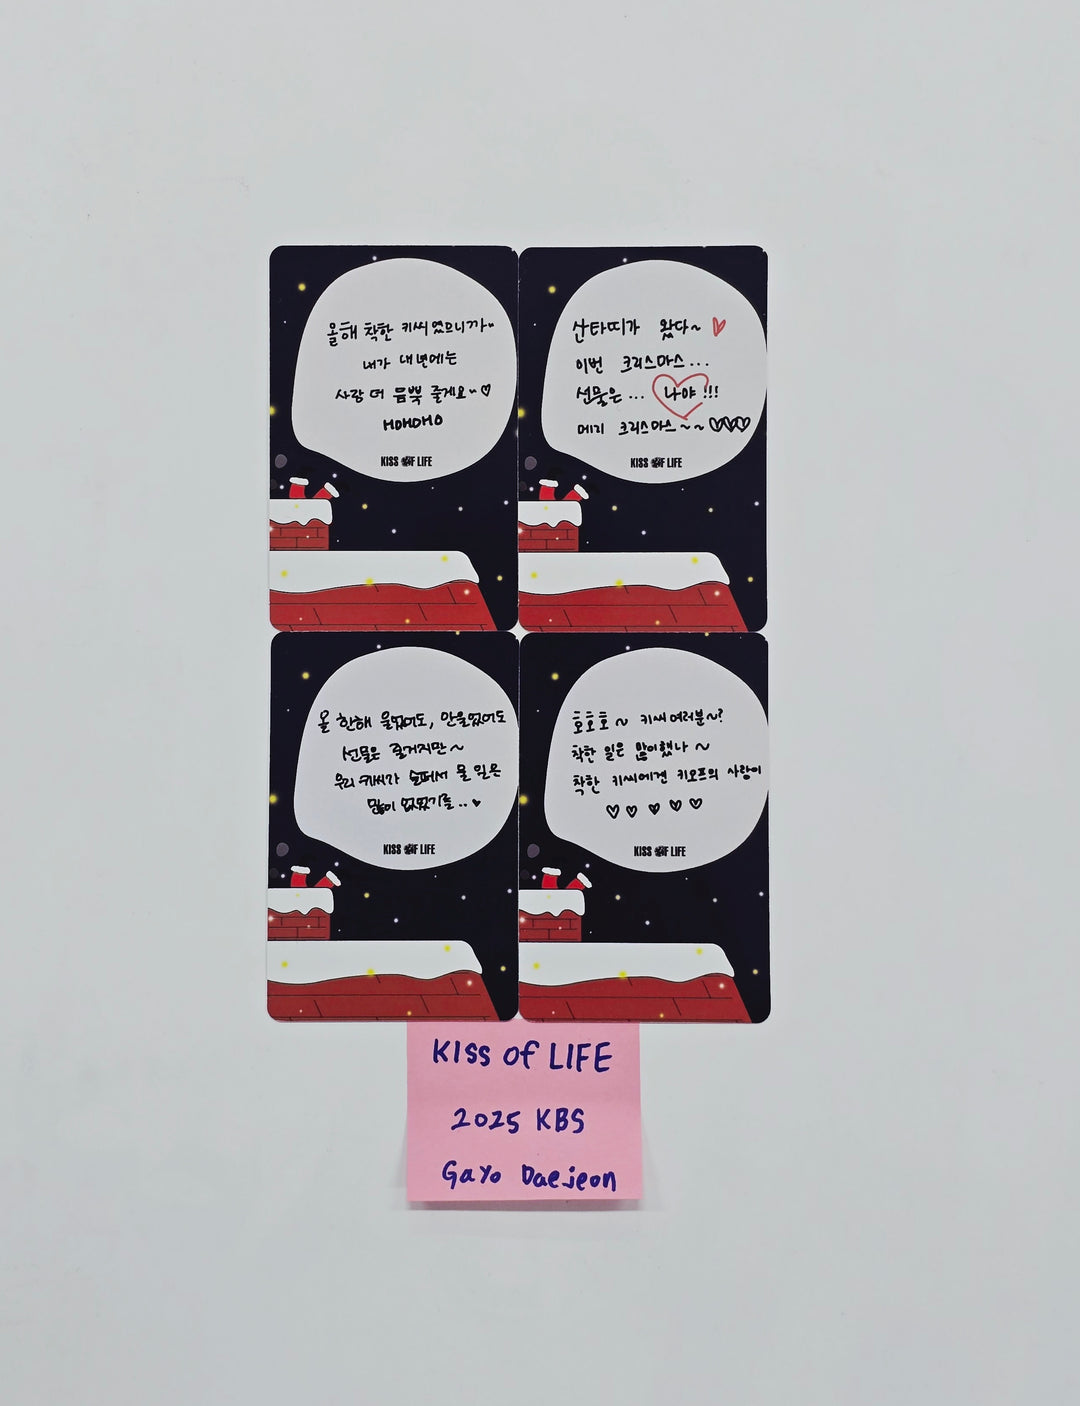 올해 착한 키씨였으니까~
내가 내년에는
사랑 더 듬뿍 줄게요~♡
HOHOHO
KISS OF LIFE
산타띠가 왔다~ ♡
이번 크리스마스...
선물은... 나야!!!
메리 크리스마스~~♡♡♡
KISS OF LIFE
올 한해 울었어도, 안울었어도
선물은 줄거지만~
우리 키씨가 슬퍼서 울 일은
많이 없었기를..♥
KISS OF LIFE
호호호~ 키씨 여러분~?
착한 일은 많이했나~
착한 키씨에겐 키오프의 사랑이
♡♡♡♡♡
KISS OF LIFE
KISS OF LIFE
2025 KBS
Gayo Daejeon